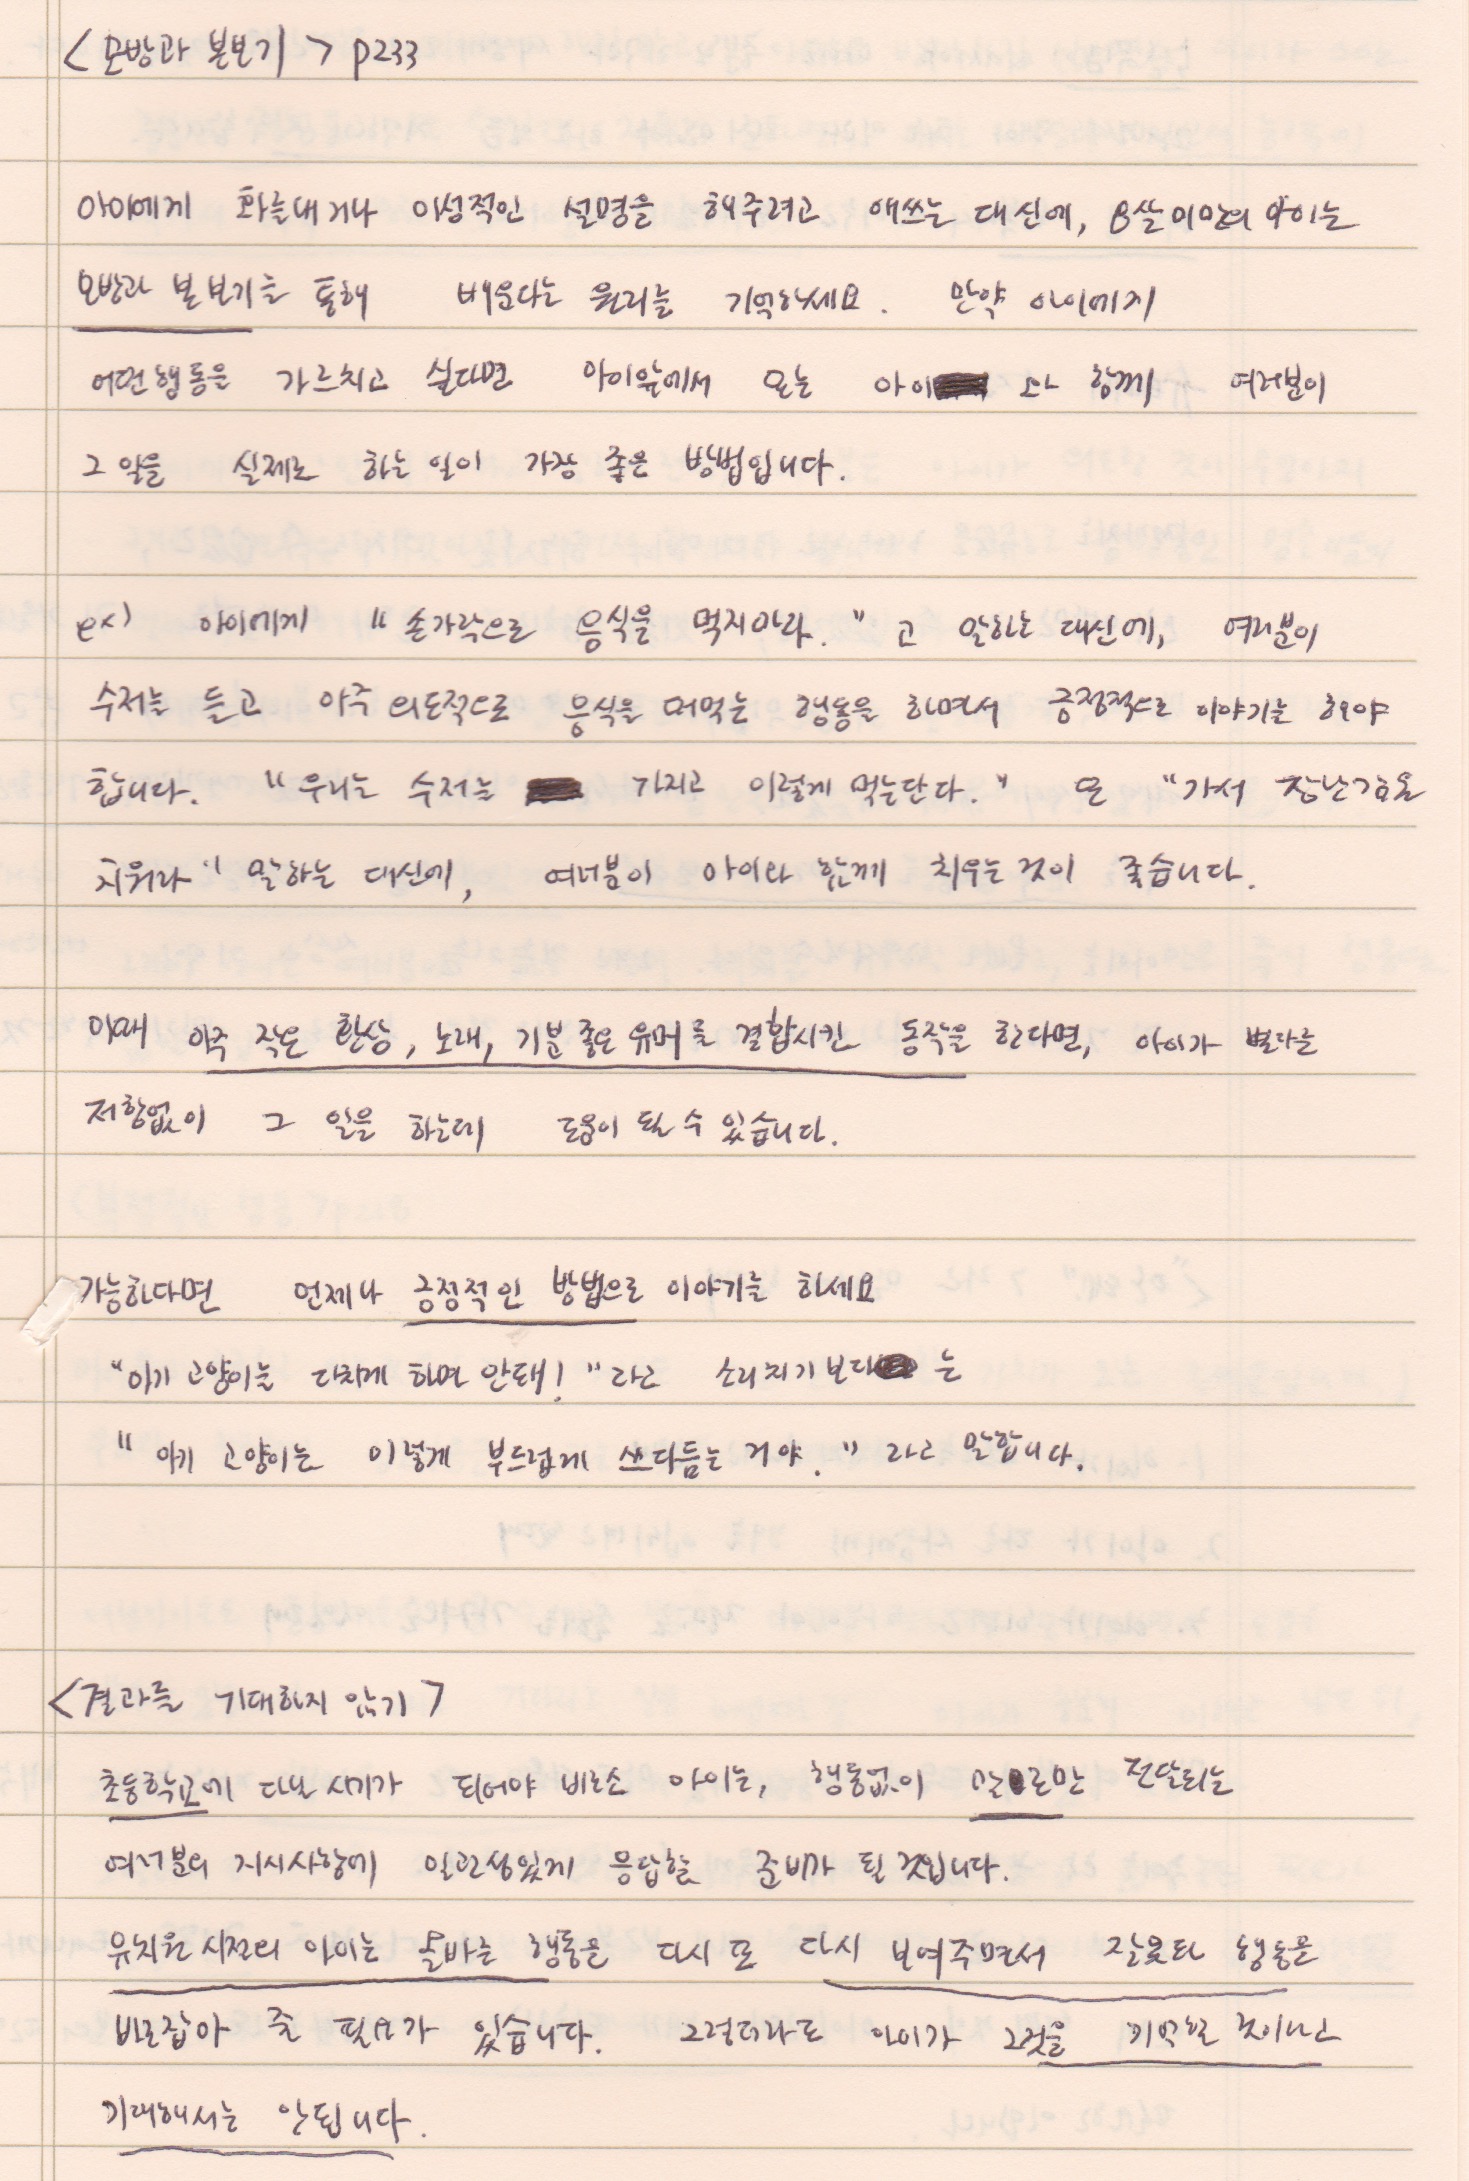 <모방과 본보기> p233
아이에게 화를내거나 이성적인 설명을 해주려고 애쓰는 대신에, 8살미만의 아이는
모방과 본보기를 통해 배운다는 원리를 기억하세요. 만약 아이에게
어떤행동을 가르치고 싶다면 아이앞에서 또는 아이와 함께 여러분이
그 일을 실제로 하는일이 가장 좋은 방법입니다.
ex) 아이에게 "손가락으로 음식을 먹지마라."고 말하는 대신에, 여러분이
수저를 들고 아주 의도적으로 음식을 떠먹는 행동을 하면서 긍정적으로 이야기를 해야
합니다. "우리는 수저를 가지고 이렇게 먹는단다." 또 "가서 장난감을
치워라" 말하는 대신에, 여러분이 아이와 함께 치우는것이 좋습니다.
이때 아주 작은 환상, 노래, 기분좋은유머를 결합시킨 동작을 한다면, 아이가 별다른
저항없이 그 일을 하는데 도움이 될수 있습니다.
가능하다면 언제나 긍정적인 방법으로 이야기를 하세요
"아기고양이를 다치게 하면 안돼!"라고 소리치기보다는
"아기 고양이는 이렇게 부드럽게 쓰다듬는거야."라고 말합니다.
<결과를 기대하지 않기>
초등학교에 다닐시기가 되어야 비로소 아이는, 행동없이 말로만 전달되는
여러분의 지시사항에 일관성있게 응답할 준비가 될것입니다.
유치원시절의 아이는 올바른 행동을 다시 또 다시 보여주면서 잘못된 행동을
바로잡아 줄 필요가 있습니다. 그렇더라도 아이가 그것을 기억할 것이라고
기대해서는 안됩니다.